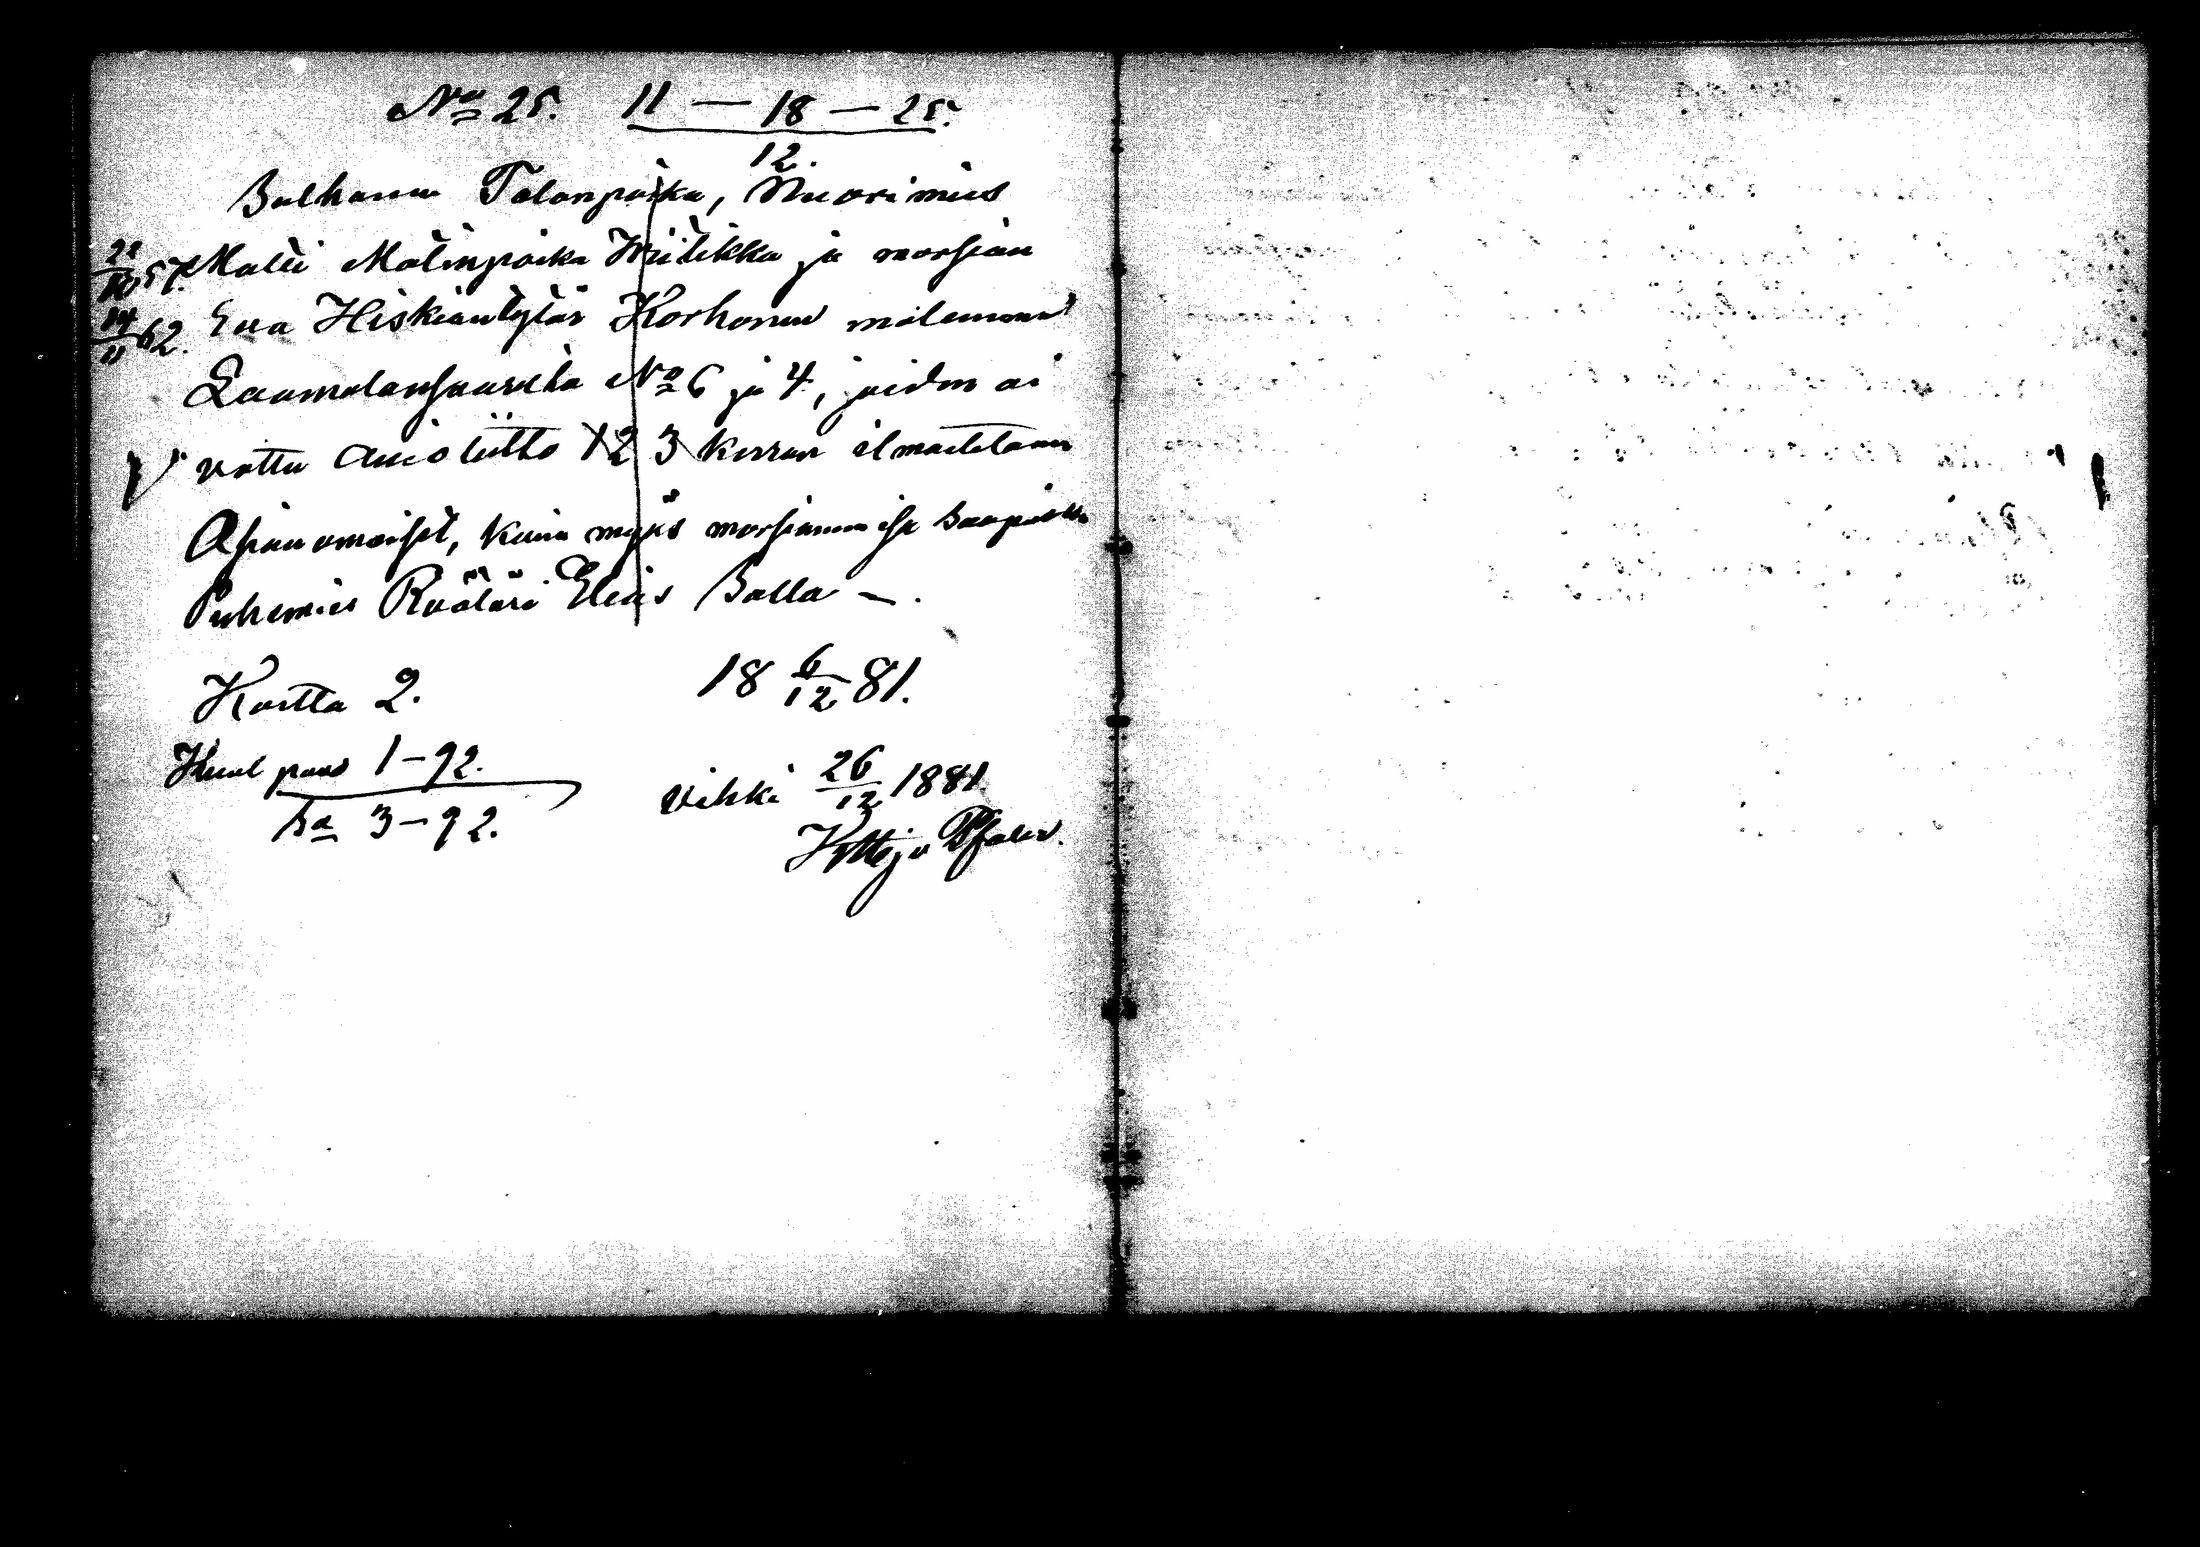 No 25. 11 — 18 — 25.
12.
Sulhanen Talonpoika, Nuorimies
22/10 57. Matti Matinpoika Wiitikka ja morsian
14/11 62. Eva Hiskiantytär Korhonen molemmat
Laamalansaarelta No 6 ja 4, joiden ai
V vottu avioliitto 1 2 3 kerran ilmoitetaan
Asianomaiset, kuin myös morsiamen isä saapuvilla
Puhemies Räätäri Elias Salla —.
Kortta 2. 18 6/12 81.
Kuul paas 1-92.
Sa 3-92.
Vihki 26/12 1881.